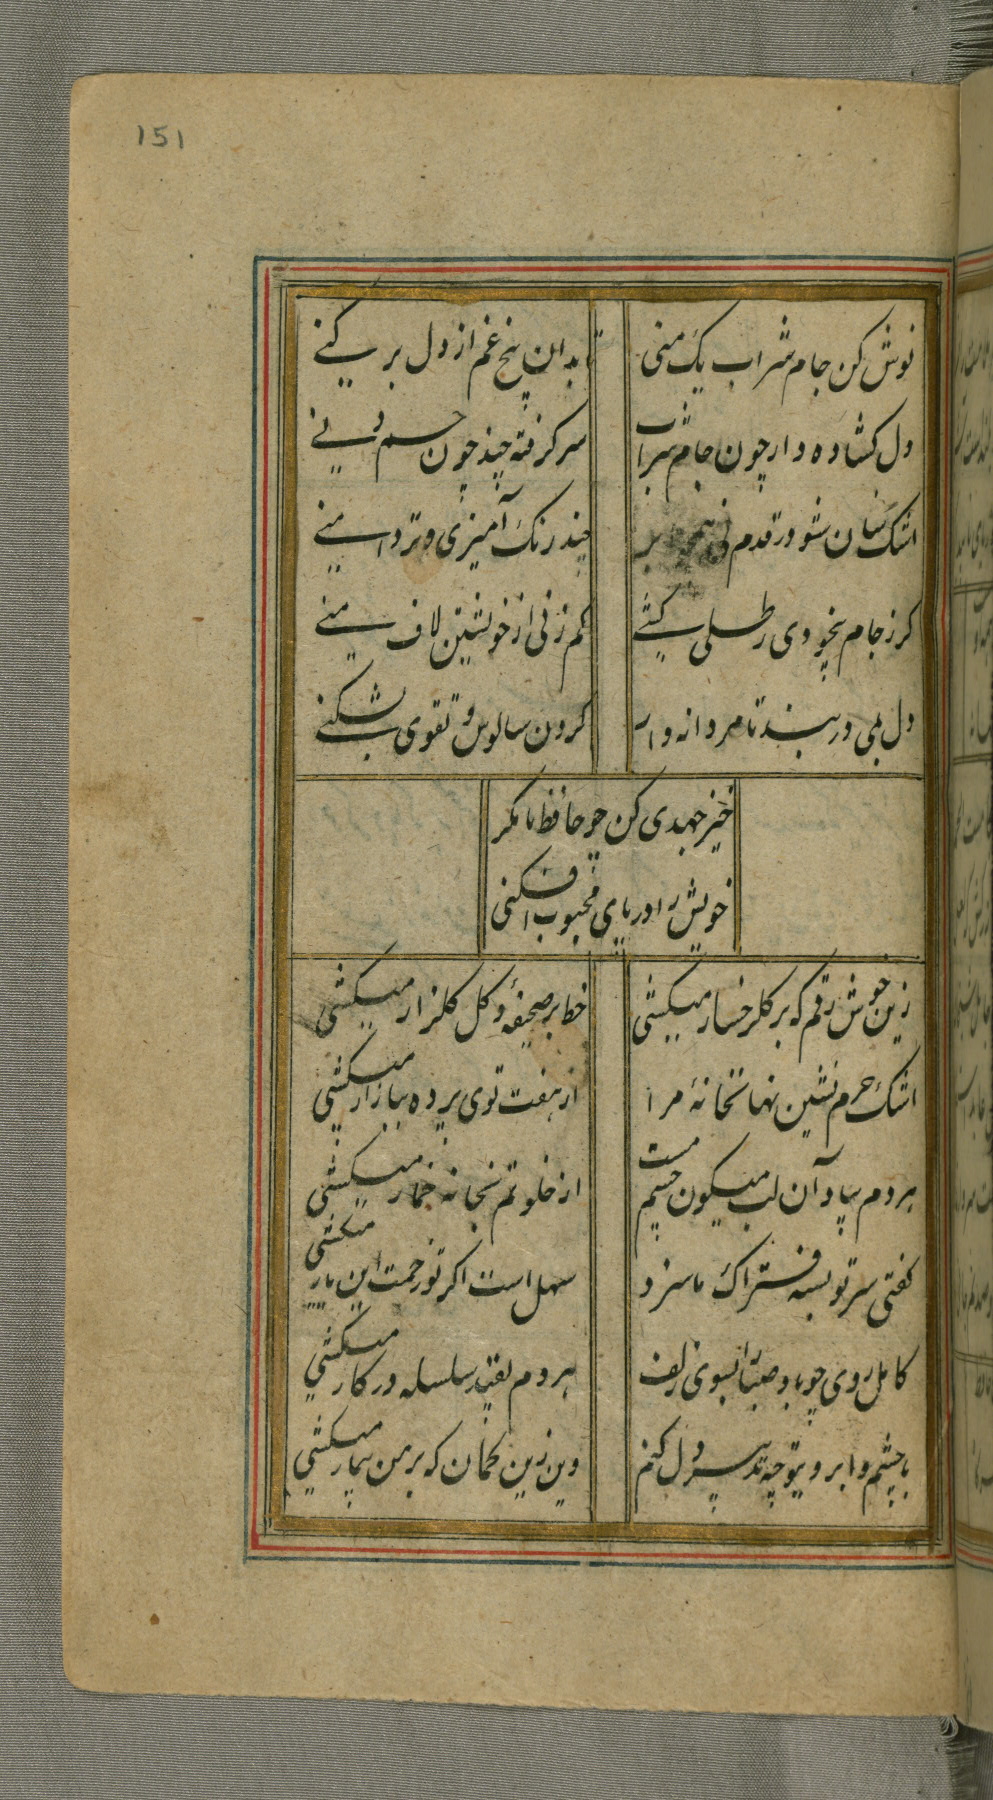 151
نوش کن جام شراب یک منی
تا بدان بیخ غم از دل بر کنی
دل کشاده دار چون جام شراب
سر کرفته چند چون خم دنی
اشک سان شو در قدم نی همچو ابر
چند رنک آمیزی و تر دامنی
کر ز جام بیخودی رطلی کشی
کم زنی از خویشتن لاف منی
دل بمی در بند تا مردانه وار
کردن سالوس و تقوی بشکنی
خیز جهدی کن چو حافظ تا مکر
خویش را در پای محبوب افکنی
زین خوش رقم که بر کل رخسار میکشی
خط بر صحیفهٔ و کل کلزار میکشی
اشک حرم نشین نهانخانهٔ مرا
از هفت توی پرده ببازار میکشی
هر دم بیاد آن لب میکون چشم مست
از خلوتم بخانه خمار میکشی
کفتی سر تو بسته فتراک ما سزد
سهل است اکر تو زحمت این بار میکشی
کاهل روی چو باد صبا را ببوی زلف
هر دم بقید سلسله در کار میکشی
با چشم و ابرو بتو چه تدبیر دل کنم
وین زین کمان که بر من بیمار میکشی